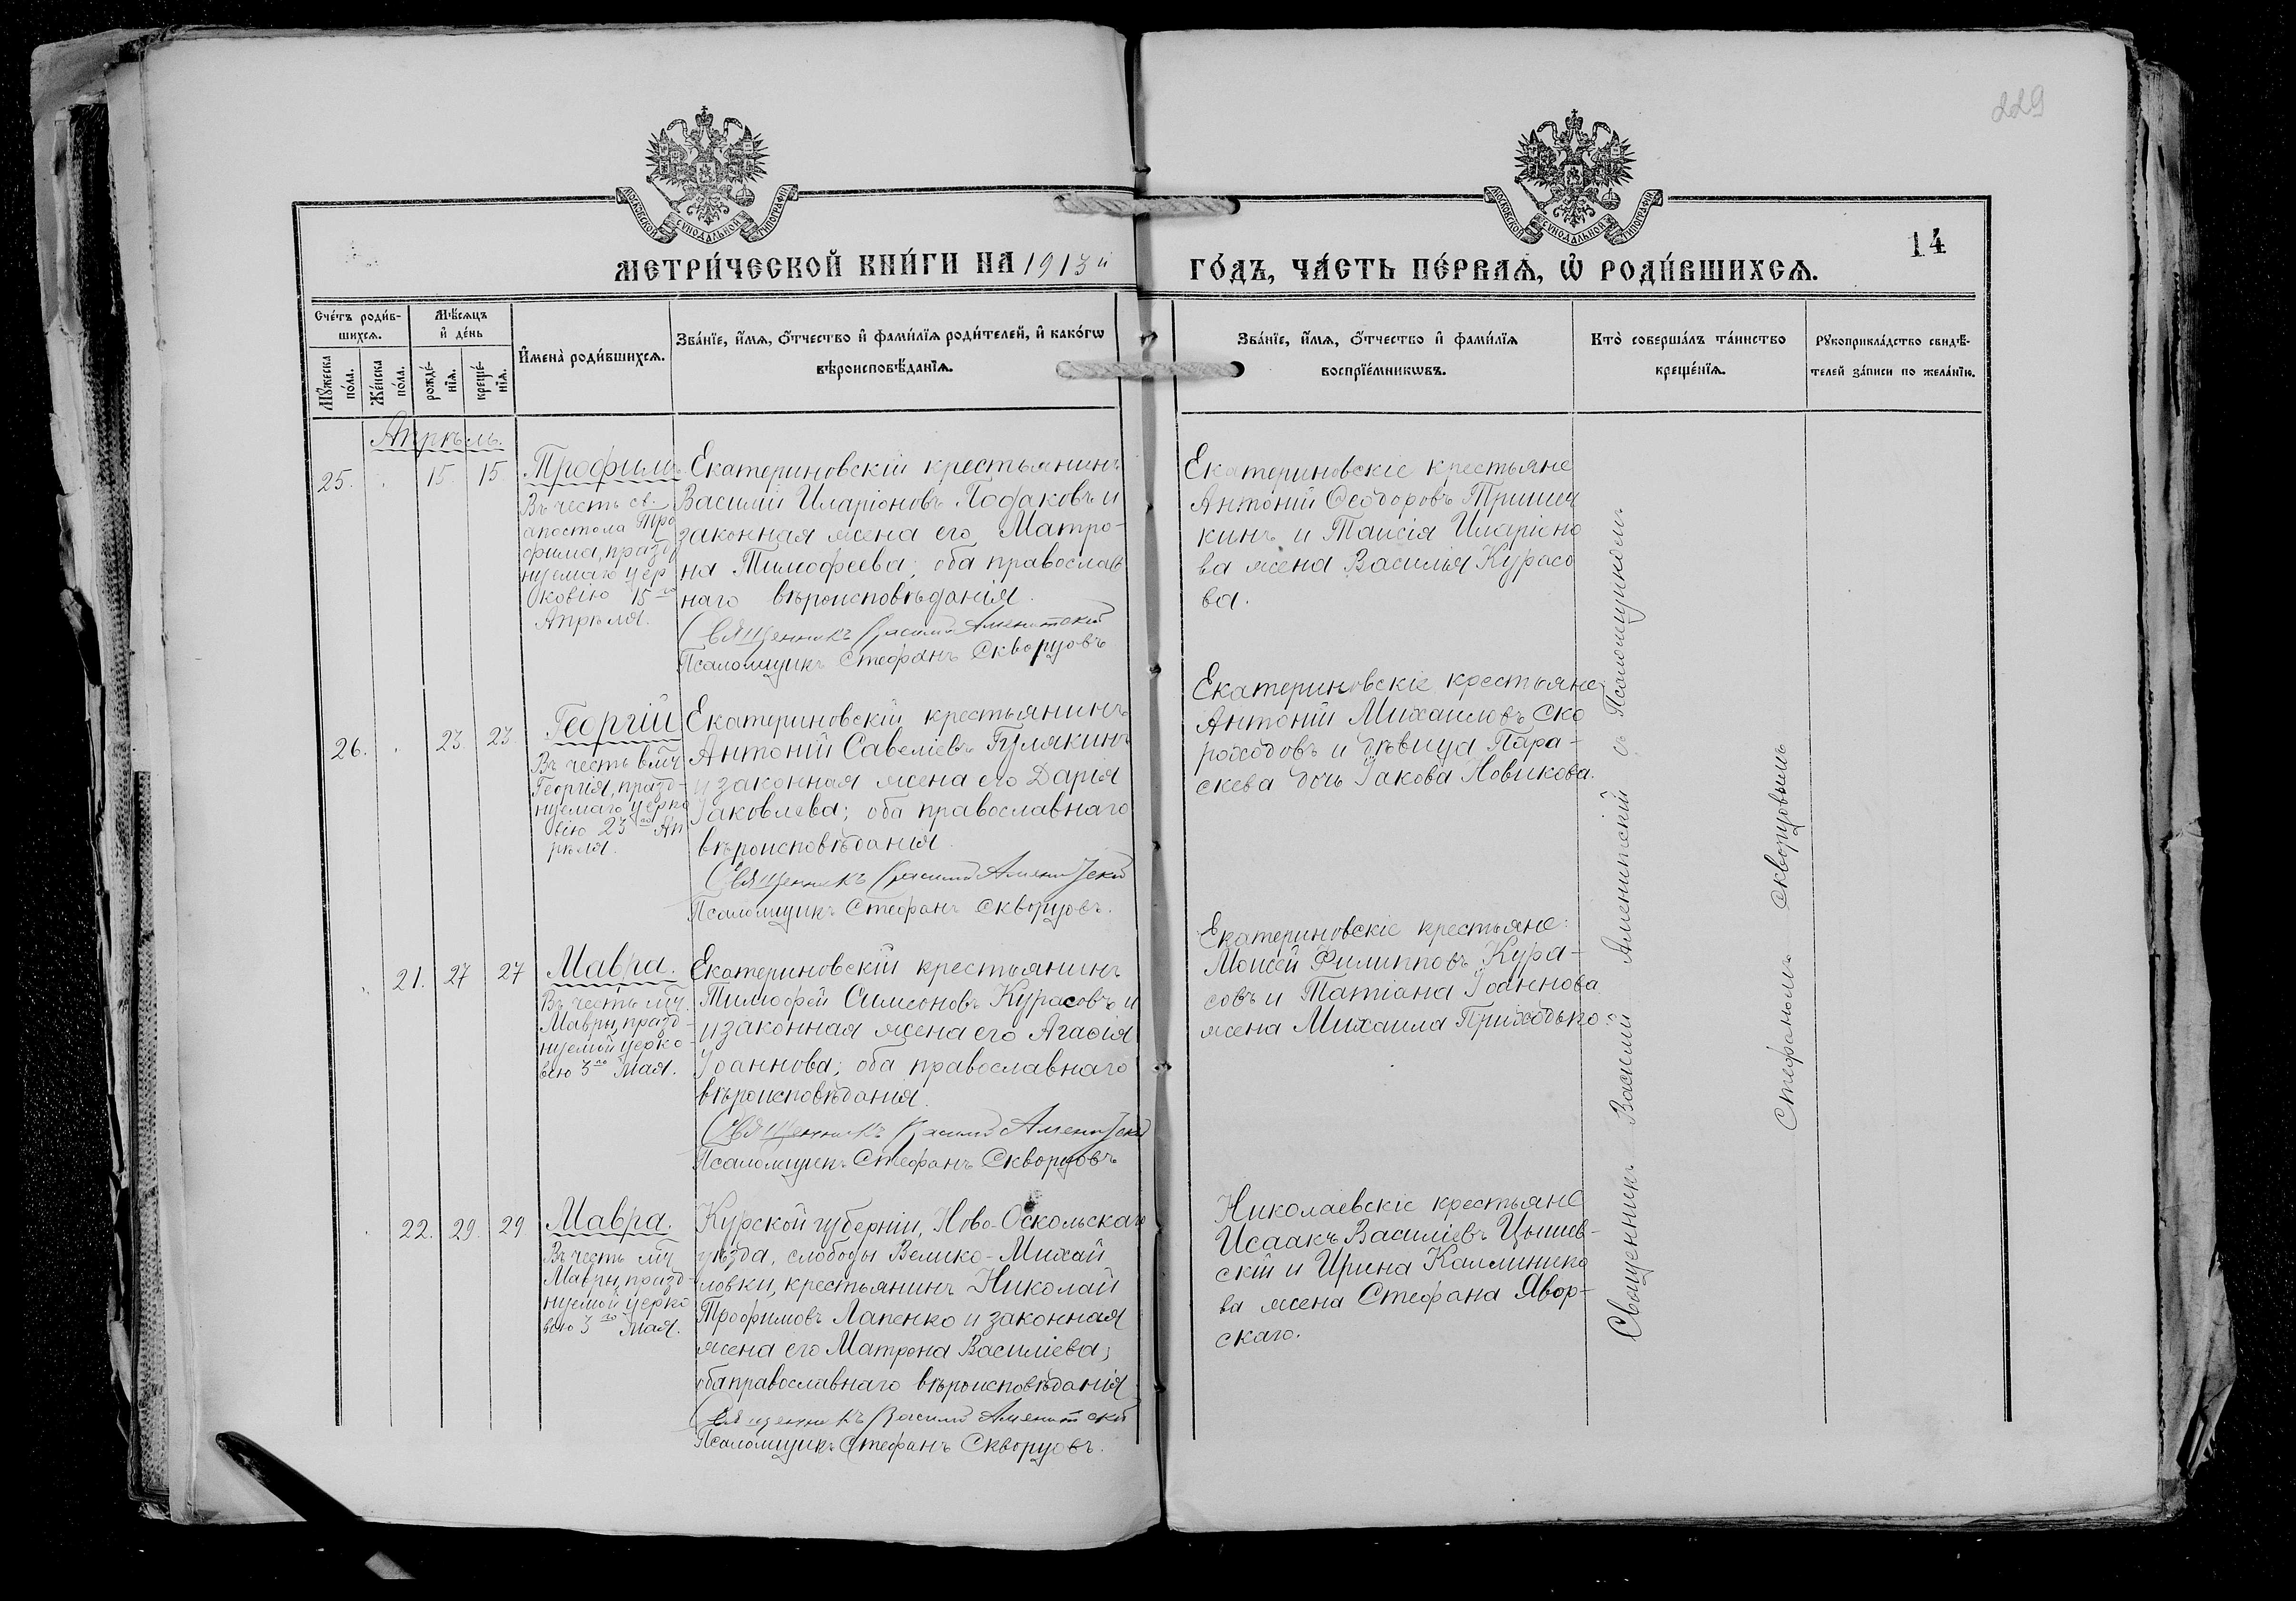 229
МОСКОВСКОЙ СУНОДАЛЬНОЙ ТИПОГРАФІИ
МОСКОВСКОЙ СУНОДАЛЬНОЙ ТИПОГРАФІИ
14
МЕТРИ́ЧЕСКОЙ КНИ́ГИ НА 1913й
ГО́ДЪ, ЧА́СТЬ ПЕ́РВАѦ, Ѽ РОДИ́ВШИХСѦ.
Сче́тъ роди́в-
шихсѧ.
Мꙋ́жеска
по́ла.
Же́нска
по́ла.
Мѣ́сѧцъ
и҆ де́нь
рожде́-
нїѧ.
креще́-
нїѧ.
И҆мена̀ роди́вшихсѧ.
Зва́нїе, и҆́мѧ, ѻ҆́тчество и҆ фами́лїѧ роди́телей, и҆ како́гѡ
вѣроисповѣ́данїѧ.
Зва́нїе, и҆́мѧ, ѻ҆́тчество и҆ фами́лїѧ
воспрїе́мникѡвъ.
Кто̀ соверша́лъ та́инство
креще́нїѧ.
Рꙋкоприкла́дство свидѣ́-
телей за́писи по жела́нїю.
Апрѣль.
25. 15 15
Трофимъ
Въ честь св.
апостола Тро
фима, празд
нуемаго цер
ковію 15го
Апрѣля.
Екатериновскій крестьянинъ
Василій Иларіоновъ Подаковъ и
законная жена его Матро-
на Тимофеева; оба православ
наго вѣроисповѣданія.
Священникъ Василій Аменитскій
Псаломщикъ Стефанъ Скворцовъ
Екатериновскіе крестьяне
Антоній Ѳеодоровъ Тришеч
кинъ и Таисія Иларіоно
ва жена Василья Курасо
ва.
26. 23 23
Георгій
Въ честь вмч
Георгія, празд-
нуемаго церко
вію 23го Ап
рѣля.
Екатериновскій крестьянинъ
Антоній Савеліевъ Гулякинъ
и законная жена его Дарія
Іаковлева; оба православнаго
вѣроисповѣданія.
Священникъ Василій Аменитскій
Псаломщикъ Стефанъ Скворцовъ.
Екатериновскіе крестьяне
Антоній Михаиловъ Ско
роходовъ и дѣвица Пара-
скева дочь Іакова Новикова.
21. 27 27
Мавра.
Въ честь мч.
Мавры, празд-
нуемой церко-
вію 3го Мая.
Екатериновскій крестьянинъ
Тимофей Симеоновъ Курасовъ и
и законная жена его Агафія
Іоаннова; оба православнаго
вѣроисповѣданія.
Священникъ Василій Аменитскій
Псаломщикъ Стефанъ Скворцовъ
Екатериновскіе крестьяне:
Моисей Филипповъ Кура-
совъ и Татіана Іоаннова
жена Михаила Приходько.
22. 29. 29
Мавра.
Въ честь мч
Мавры, празд-
нуемой церко
вію 3го Мая.
Курской губерніи, Ново-Оскольскаго
уѣзда, слободы Велико-Михай
ловки, крестьянинъ Николай
Трофимовъ Лапенко и законная
жена его Матрона Василіева;
оба православнаго вѣроисповѣданія
Священникъ Василій Аменитскій
Псаломщикъ Стефанъ Скворцовъ.
Николаевскіе крестьяне
Исаакъ Василіевъ Цышев-
скій и Ирина Каллинико
ва жена Стефана Явор-
скаго.
Священникъ Василій Аменитскій съ Псаломщикомъ
Стефаномъ Скворцовымъ